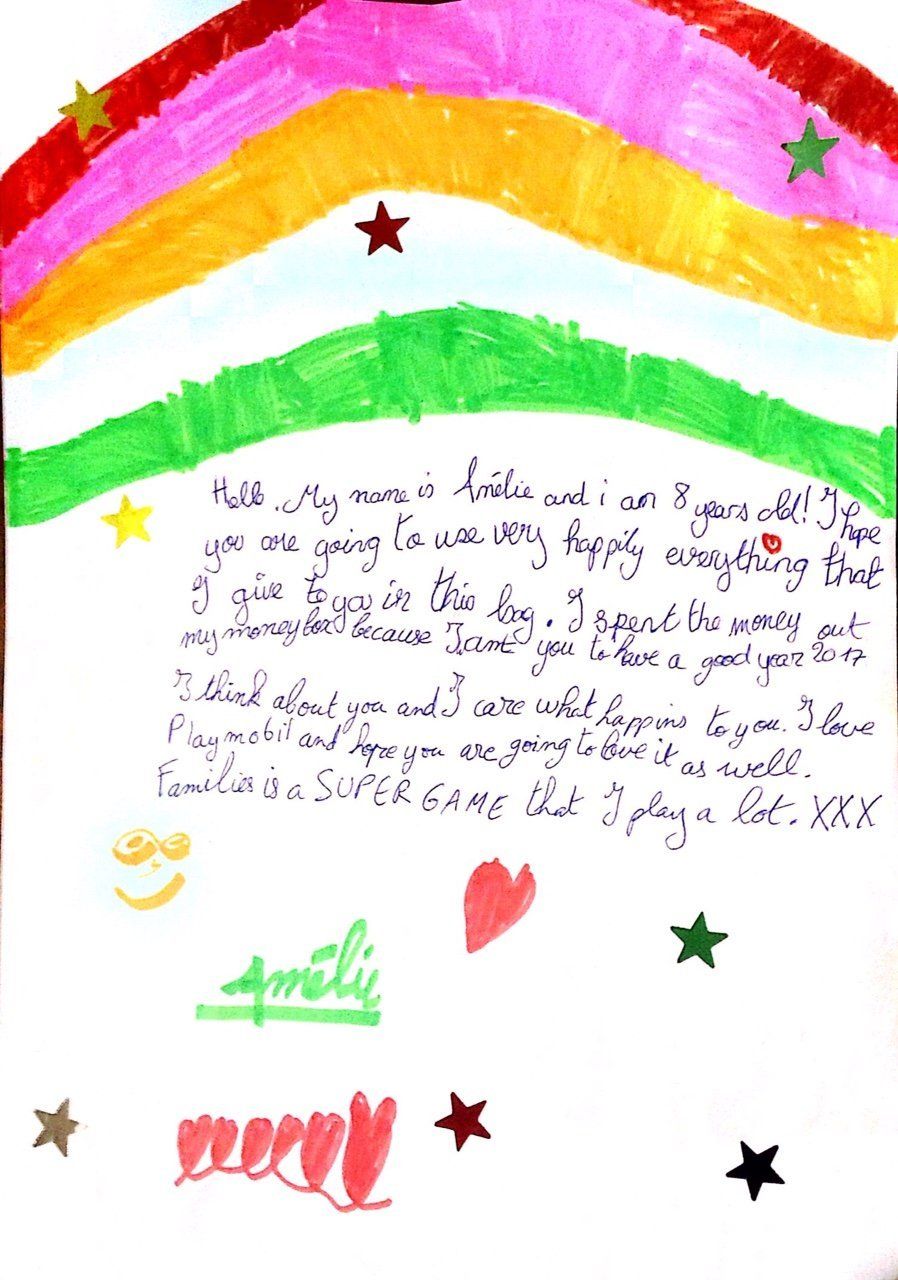 Hello. My name is Amélie and i am 8 years old! I hope
you are going to use very happily everything that
I give to you in this bag. I spent the money out
my moneybox because I want you to have a good year 2017
I think about you and I care what happins to you. I love
Playmobil and hope you are going to love it as well.
Families is a SUPER GAME that I play a lot. XXX
Amélie